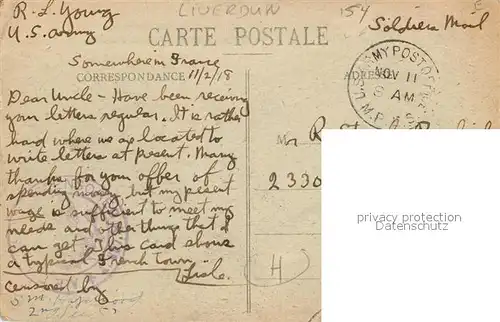 R. L. Young
U.S. army
LIVERDUN
154
Soldiers Mail
CARTE POSTALE
Somewhere in France
CORRESPONDANCE 11/2/18
Dear Uncle - Have been receiving
your letters regular. It is rather
hard where we are located to
write letters at present. Many
thanks for your offer of
spending money, but my present
wage is sufficient to meet my
needs and other things that I
can get. This card shows
a typical French town.
censored by
U.S. ARMY POST OFFICE
NOV 11
AM
M.P.
M
R
2330
H
privacy protection
Datenschutz